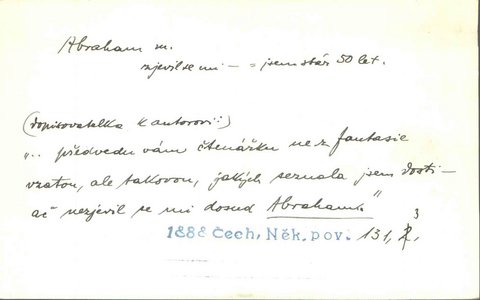 Abraham m.
zjevil se mi — = jsem stár 50 let.
(Dopisovatelka k autorovi:)
„.. předvedu vám čtenářku ne z fantasie
vzatou, ale takovou, jakých seznala jsem dosti —
ač nezjevil se mi dosud Abraham."
1888 Čech, Něk. pov. 131, 3.